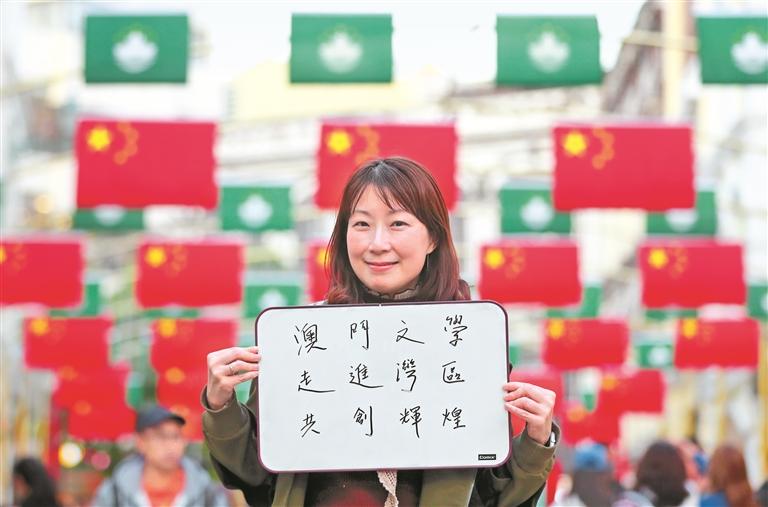 澳門文學
走進灣區
共創輝煌
Comix